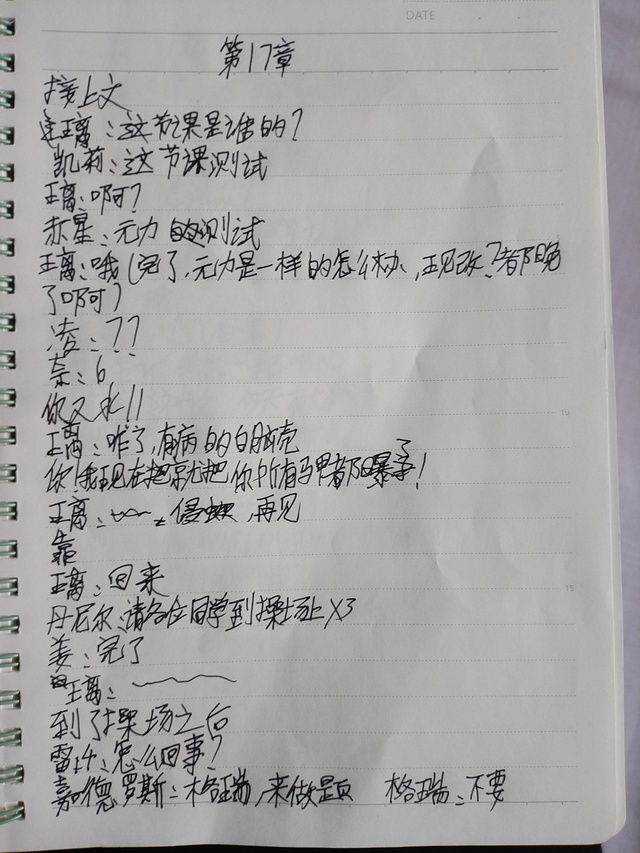 DATE
第17章
接上文
璃:这节课是谁的?
凯莉:这节课测试
璃:啊?
赤星:元力的测试
璃:哦(完了,元力是一样的怎么办,现改?都晚
了啊?
凌:??
奈:6
你又水!!
璃:咋了,有病的白脑壳
你!我现在就把你所有马甲都曝了!
璃:~~,再见
靠
璃:回来
10
15
丹尼尔:请各位同学到操场上X3
姜:完了
璃:
到了操场之后
雷:怎么回事?
嘉德罗斯:格瑞,来做题 格瑞:不要